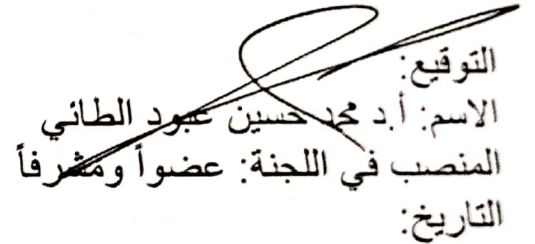 التوقيع:
الاسم: أ.د محمد حسين عبود الطائي
المنصب في اللجنة: عضواً ومشرفاً
التاريخ: